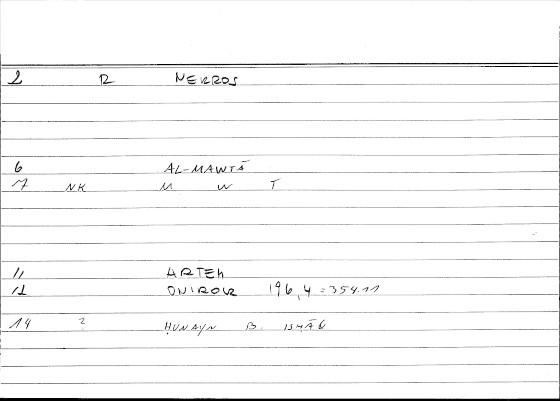 2 R NEKROS
6 AL-MAWTĀ
7 NK M W T
11 ARTEM
12 ONIROCR 196,4 = 354.11
14 2 ḤUNAYN B. ISḤĀQ